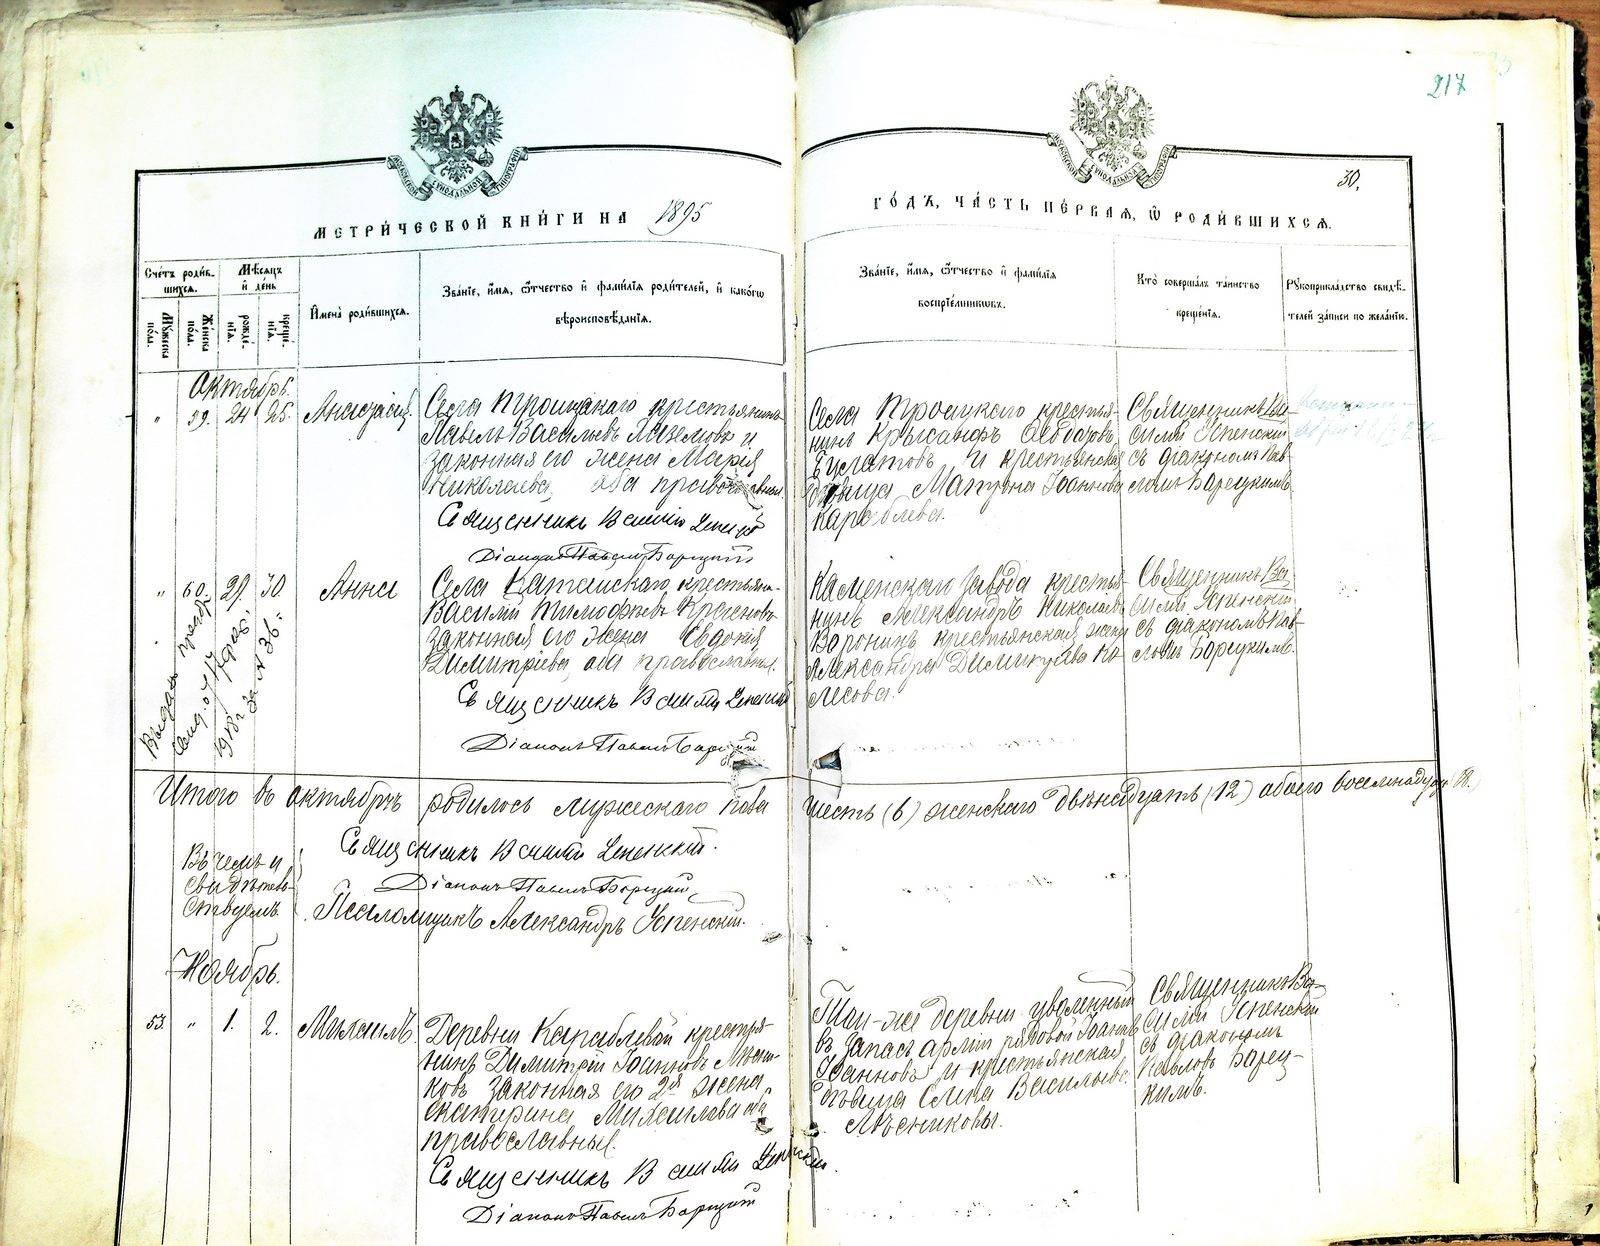 217
30.
МОСКОВСКОЙ СѴНОДАЛЬНОЙ ТИПОГРАФІИ
МОСКОВСКОЙ СѴНОДАЛЬНОЙ ТИПОГРАФІИ
МЕТРИ́ЧЕСКОЙ КНИ́ГИ НА 1895
ГО́ДЪ, ЧА́СТЬ ПЕ́РВАЯ, Ѡ РОДИ́ВШИХСЯ.
Сче́тъ роди́в-
шихся.
Мѣ́сяцъ
и́ де́нь
Му́жеска по́ла.
Же́нска по́ла.
рожде́-
нія.
креще́-
нія.
И҆мена̀ роди́вшихся.
Зва́нїе, и҆́мя, ѻ҆́тчество и҆ фами́лїя роди́телей, и҆ како́гѡ
вѣроисповѣ́данїя.
Зва́нїе, и҆́мя, ѻ҆́тчество и҆ фами́лїя
воспрїе́мникѡвъ.
Кто̀ соверша́лъ та́инство
креще́нїя.
Рꙋкоприкла́дство свидѣ́-
телей за́писи по жела́нїю.
Октябрь.
" 59. 24 25. Анастасія.
Села Троицкаго крестьянинъ
Павелъ Васильевъ и
законная его жена Марія
Николаева, оба православные.
Священникъ Василій Успенскій
Діаконъ Павелъ Борецкій
Села Троицкаго крестья-
нинъ Крысанфъ Ѳеодоровъ
Булатовъ и крестьянская
дѣвица Матрона Іоаннова
Караблева.
Священникъ Ва-
силій Успенскій
съ діакономъ Пав-
ломъ Борецкимъ.
" 60. 29. 30. Анна
Села Катайскаго крестьянинъ
Василій Тимофѣевъ
законная его жена Евдокія
Димитріева, оба православные.
Священникъ Василій Успенскій
Діаконъ Павелъ Борецкій
Каменскаго завода крестья-
нинъ Александръ Николаевъ
Воронинъ крестьянская жена
Александра Димитріева Ко-
лесова.
Священникъ Ва-
силій Успенскій
съ діакономъ Пав-
ломъ Борецкимъ.
Выдана
1918 г. за № 36.
Итого въ октябрѣ родилось мужескаго пола шесть (6) женскаго двѣнадцать (12) обоего восемнадцать (18.)
Въ чемъ и
свидѣтель-
ствуемъ
Священникъ Василій Успенскій.
Діаконъ Павелъ Борецкій
Псаломщикъ Александръ Успенскій.
Ноябрь.
53. " 1. 2. Михаилъ.
Деревни Караблевой крестья-
нинъ Димитрій Іоанновъ Мѣсни-
ковъ законная его 2я жена
Екатерина Михаилова оба
православные.
Священникъ Василій Успенскій.
Діаконъ Павелъ Борецкій
Той-же деревни уволенный
въ запасъ арміи рядовой Іоаннъ
Іоанновъ и крестьянская
дѣвица Елена Васильева
Мѣсниковы.
Священникъ Ва-
силій Успенскій
съ діакономъ
Павломъ Борец-
кимъ.